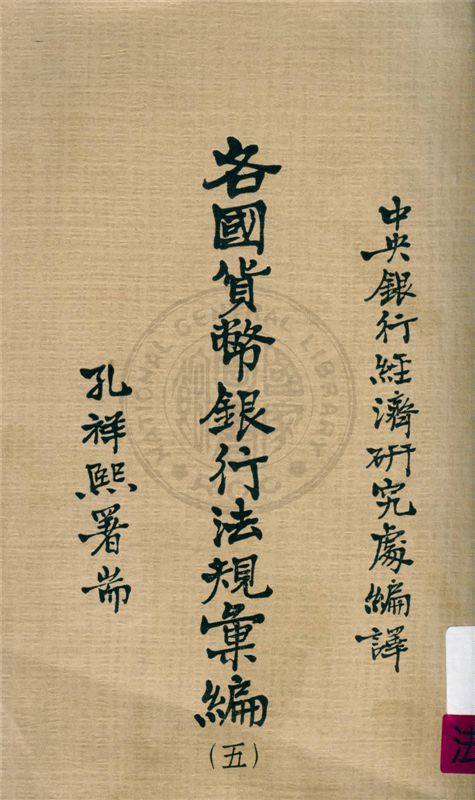 中央銀行經濟研究處編譯
各國貨幣銀行法規彙編
(五)
孔祥熙署耑
法